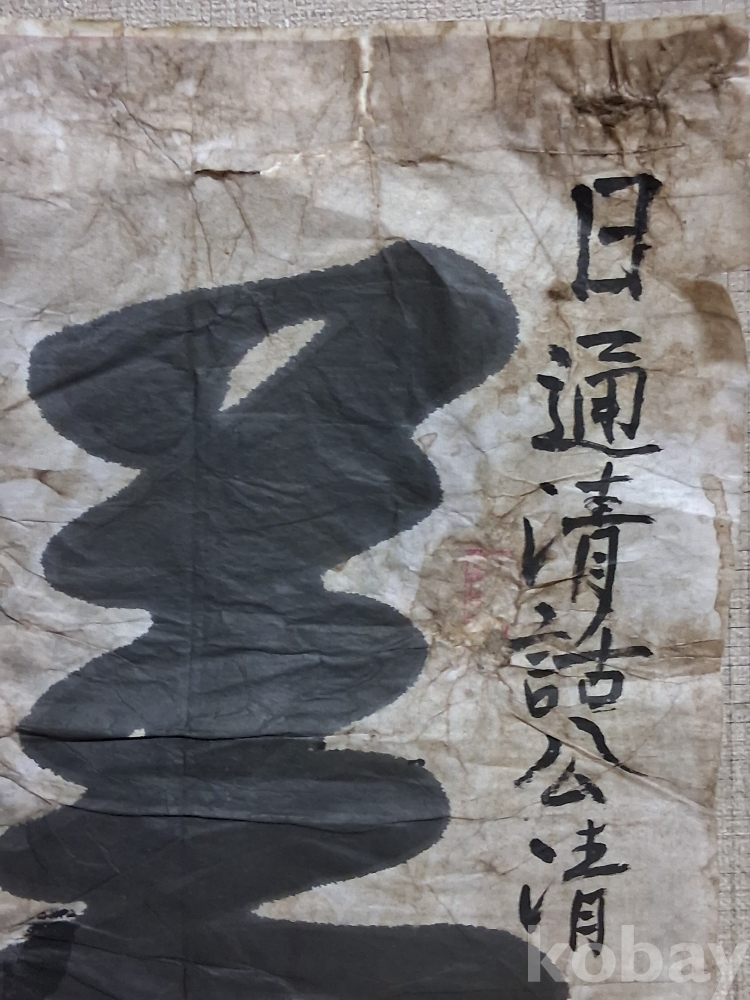 日通清詰公清
kobay